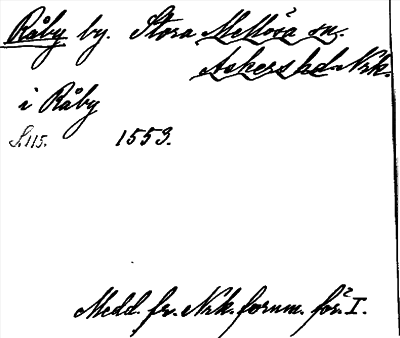 Råby by. Stora Mellösa sn.
Askers hd Nrk.
i Råby
S. 115. 1553.
Medd. fr. Nrk. fornm. för. I.